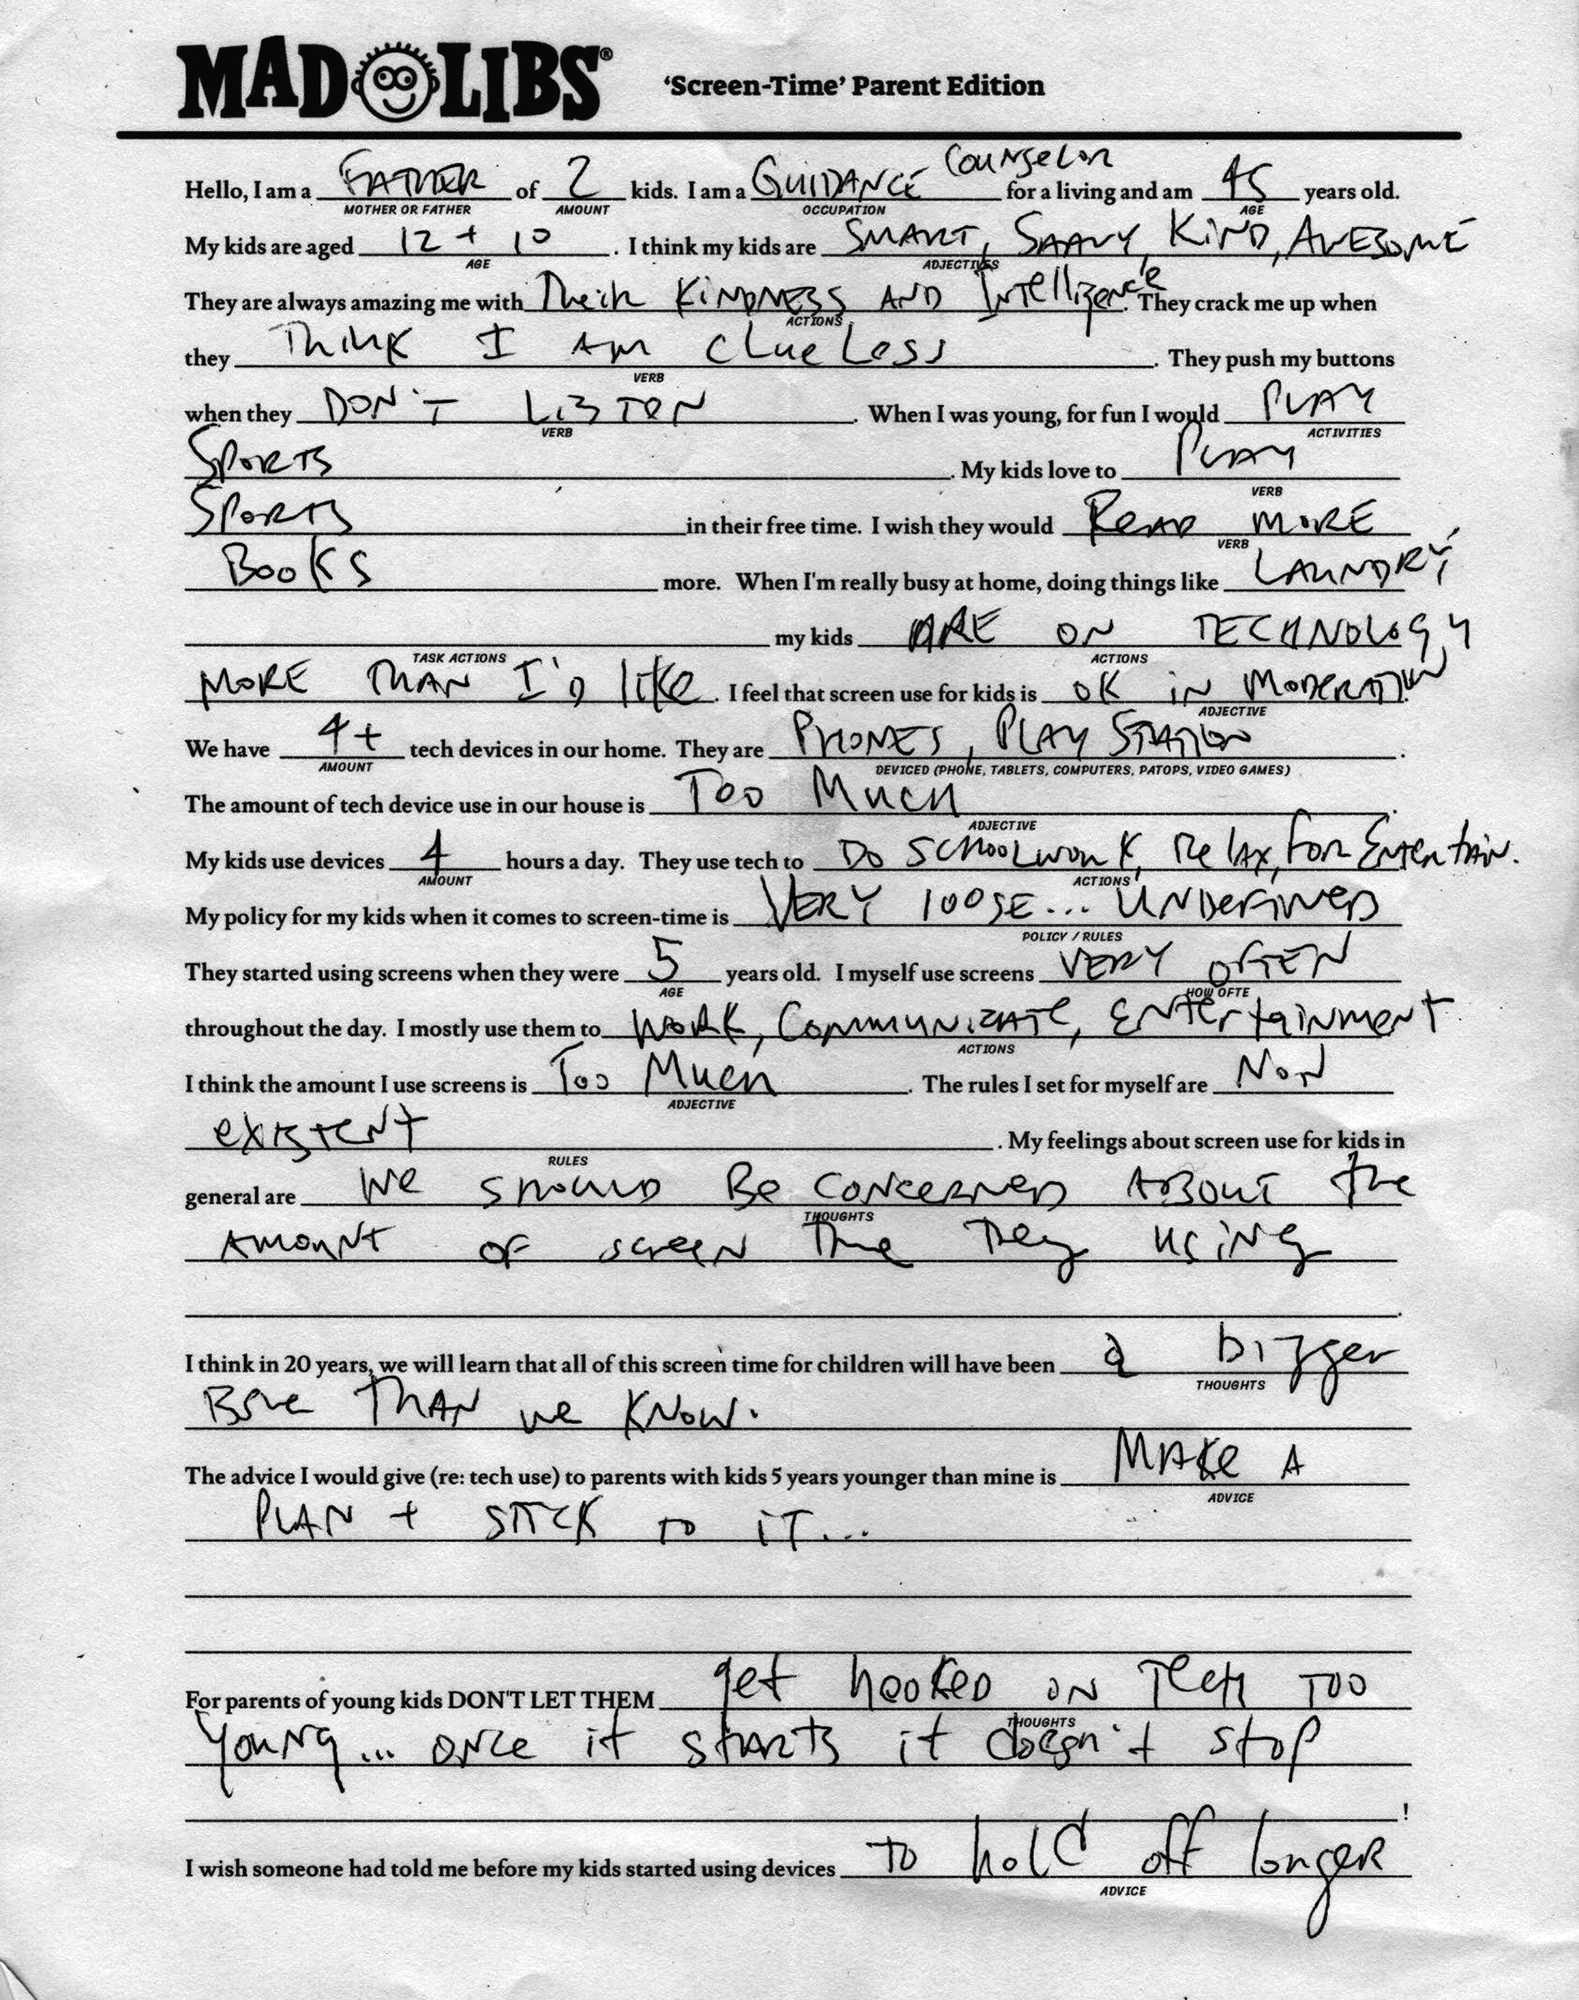 MAD LIBS® 'Screen-Time' Parent Edition
Hello, I am a FATHER of 2 kids. I am a GUIDANCE COUNSELOR for a living and am 45 years old.
MOTHER OR FATHER AMOUNT OCCUPATION AGE
My kids are aged 12 + 10 . I think my kids are SMART, SAAVY, KIND, AWESOME
AGE ADJECTIVES
They are always amazing me with Their KINDNESS AND Intelligence. They crack me up when
ACTIONS
they Think I AM clueless . They push my buttons
VERB
when they DON'T LISTEN . When I was young, for fun I would PLAY
VERB ACTIVITIES
SPORTS . My kids love to PLAY
VERB
SPORTS in their free time. I wish they would READ MORE
VERB
BOOKS more. When I'm really busy at home, doing things like LAUNDRY,
my kids ARE ON TECHNOLOGY
TASK ACTIONS ACTIONS
MORE THAN I'D like . I feel that screen use for kids is OK IN MODERATION
ADJECTIVE
We have 4+ tech devices in our home. They are PHONES, PLAY STATION .
AMOUNT DEVICED (PHONE, TABLETS, COMPUTERS, PATOPS, VIDEO GAMES)
The amount of tech device use in our house is Too Much .
ADJECTIVE
My kids use devices 4 hours a day. They use tech to DO SCHOOLWORK, Relax, For Entertain.
AMOUNT ACTIONS
My policy for my kids when it comes to screen-time is VERY loose... UNDEFINED
POLICY / RULES
They started using screens when they were 5 years old. I myself use screens VERY OFTEN
AGE HOW OFTE
throughout the day. I mostly use them to WORK, COMMUNICATE, Entertainment.
ACTIONS
I think the amount I use screens is Too Much . The rules I set for myself are NON
ADJECTIVE
existent . My feelings about screen use for kids in
RULES
general are We SHOULD Be CONCERNED ABOUT the
THOUGHTS
AMOUNT OF screen Time They using
.
I think in 20 years, we will learn that all of this screen time for children will have been a bigger
THOUGHTS
THAN we KNOW.
The advice I would give (re: tech use) to parents with kids 5 years younger than mine is MAKE A
ADVICE
PLAN + STICK TO IT...
For parents of young kids DON'T LET THEM get hooked ON Tech TOO
THOUGHTS
Young... once it starts it doesn't stop
!
I wish someone had told me before my kids started using devices TO hold off longer
ADVICE